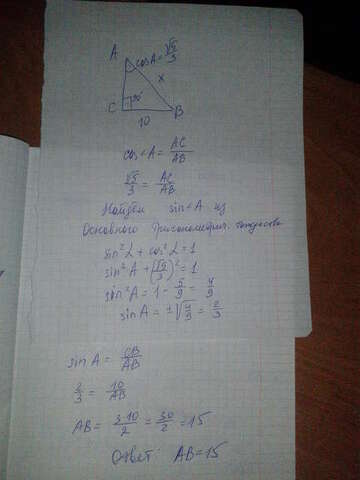 A
cosA = √5/3
x
C 90° B
10
cos∠A = AC/AB
√5/3 = AC/AB
Найдем sin∠A из
Основного Тригонометрич. тождества
sin²α + cos²α = 1
sin²A + (√5/3)² = 1
sin²A = 1 - 5/9 = 4/9
sin A = ±√4/9 = 2/3
sin A = CB/AB
2/3 = 10/AB
AB = 3·10/2 = 30/2 = 15
Ответ: AB = 15